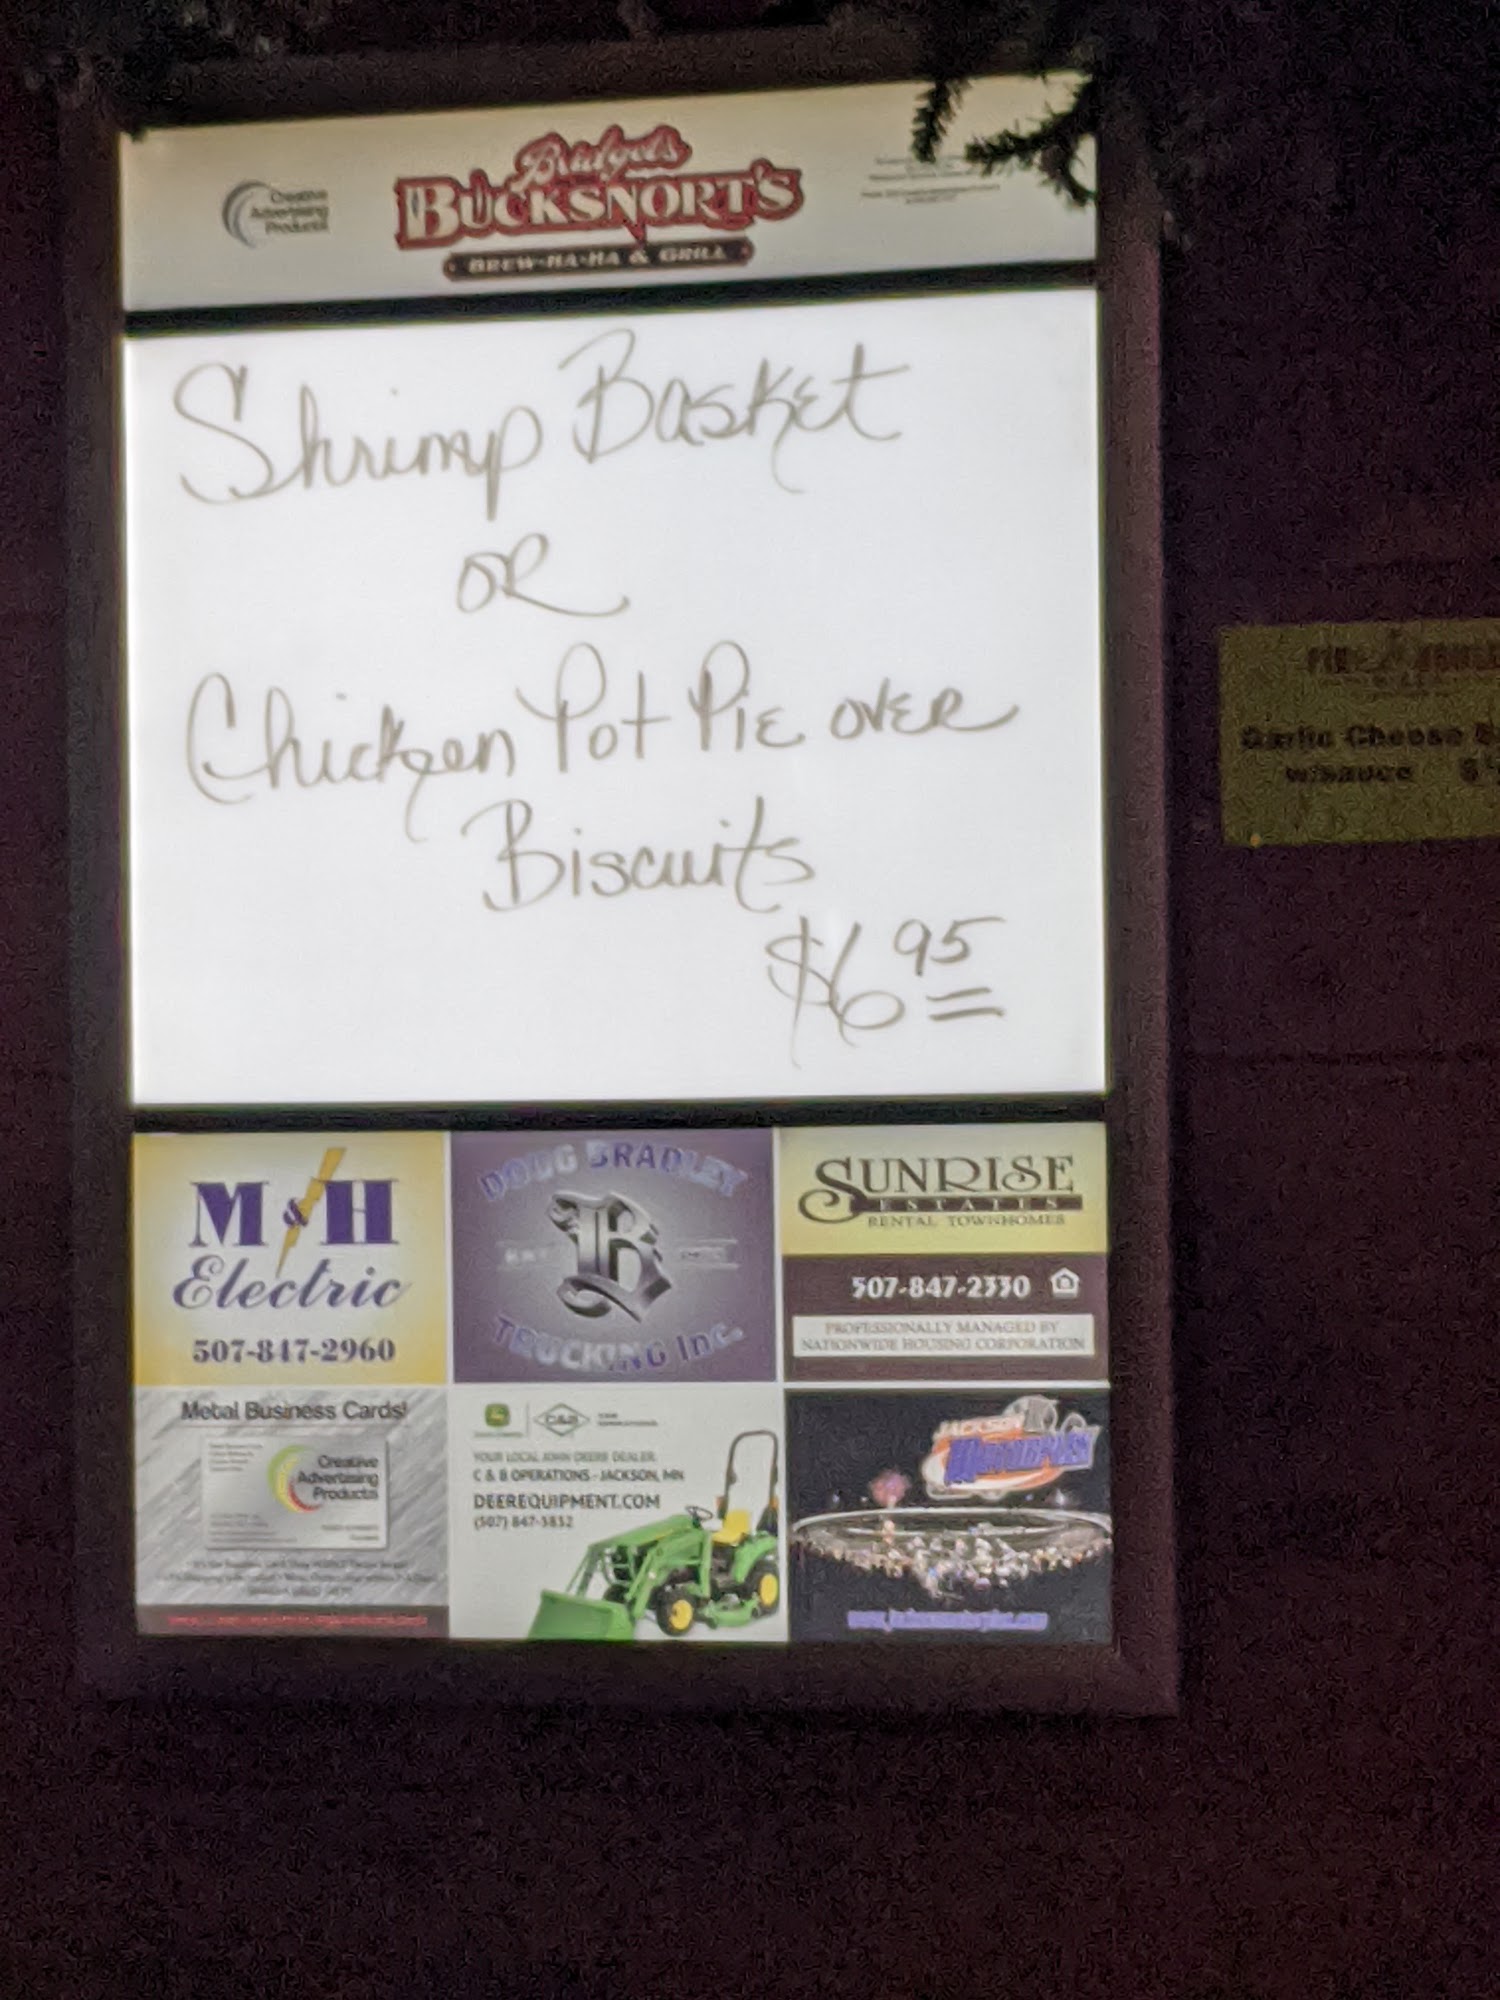 Creative
Advertising
Products
Bridget's
BUCKSNORT'S
BREW-HA-HA & GRILL
Shrimp Basket
OR
Chicken Pot Pie over
Biscuits
$6 95
M & H
Electric
507-847-2960
DOUG BRADLEY
B
TRUCKING Inc.
SUNRISE
ESTATES
RENTAL TOWNHOMES
507-847-2330
PROFESSIONALLY MANAGED BY
NATIONWIDE HOUSING CORPORATION
Metal Business Cards!
Creative
Advertising
Products
C&B
YOUR LOCAL JOHN DEERE DEALER
C & B OPERATIONS - JACKSON, MN
DEEREQUIPMENT.COM
(507) 847-3852
JACKSON
MOTORPLEX
Garlic Cheese
w/sauce